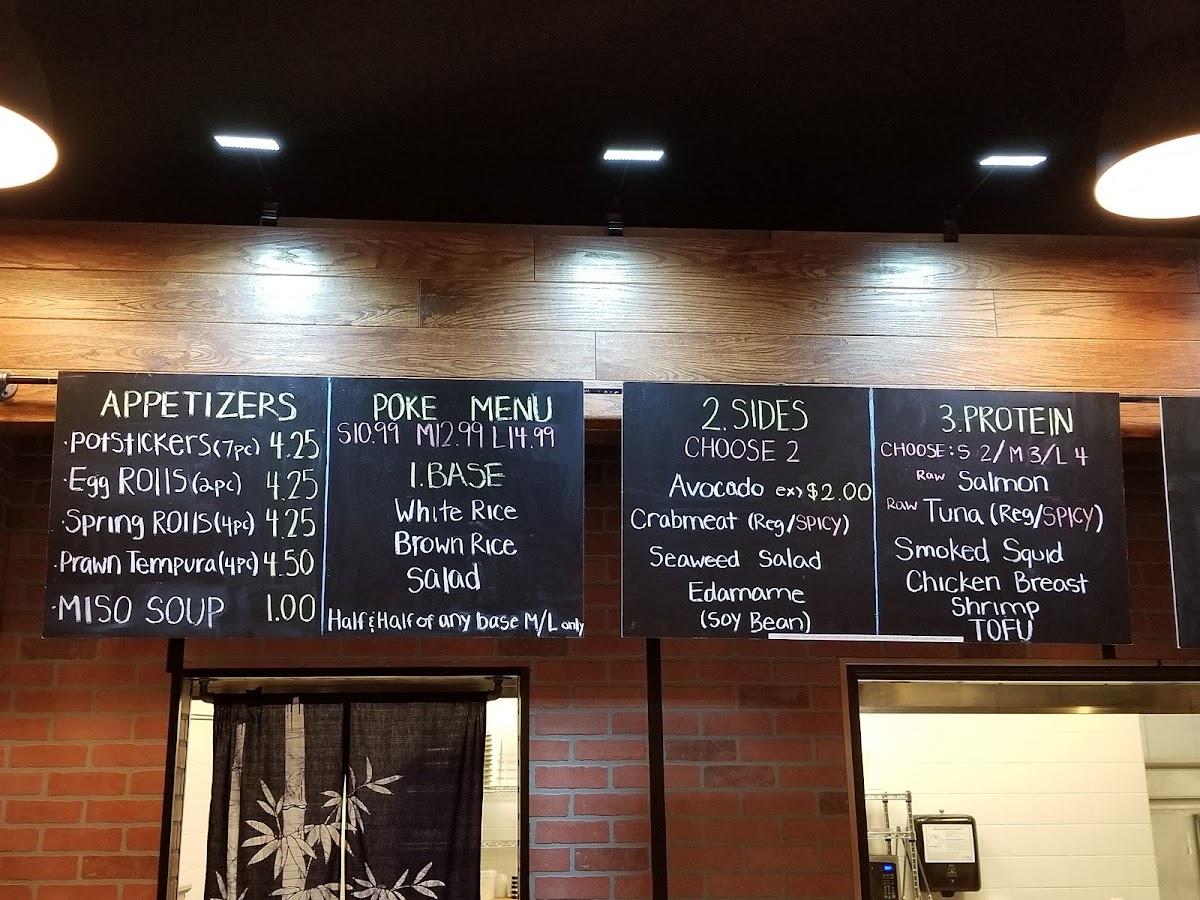 APPETIZERS
·Potstickers(7pc) 4.25
·Egg Rolls(2pc) 4.25
·Spring Rolls(4pc) 4.25
·Prawn Tempura(4pc) 4.50
·MISO SOUP 1.00
POKE MENU
S10.99 M12.99 L14.99
1.BASE
White Rice
Brown Rice
Salad
Half & Half of any base M/L only
2.SIDES
CHOOSE 2
Avocado ex) $2.00
Crabmeat (Reg/SPICY)
Seaweed Salad
Edamame
(Soy Bean)
3.PROTEIN
CHOOSE: S 2/M 3/L 4
Raw Salmon
Raw Tuna (Reg/SPICY)
Smoked Squid
Chicken Breast
Shrimp
TOFU